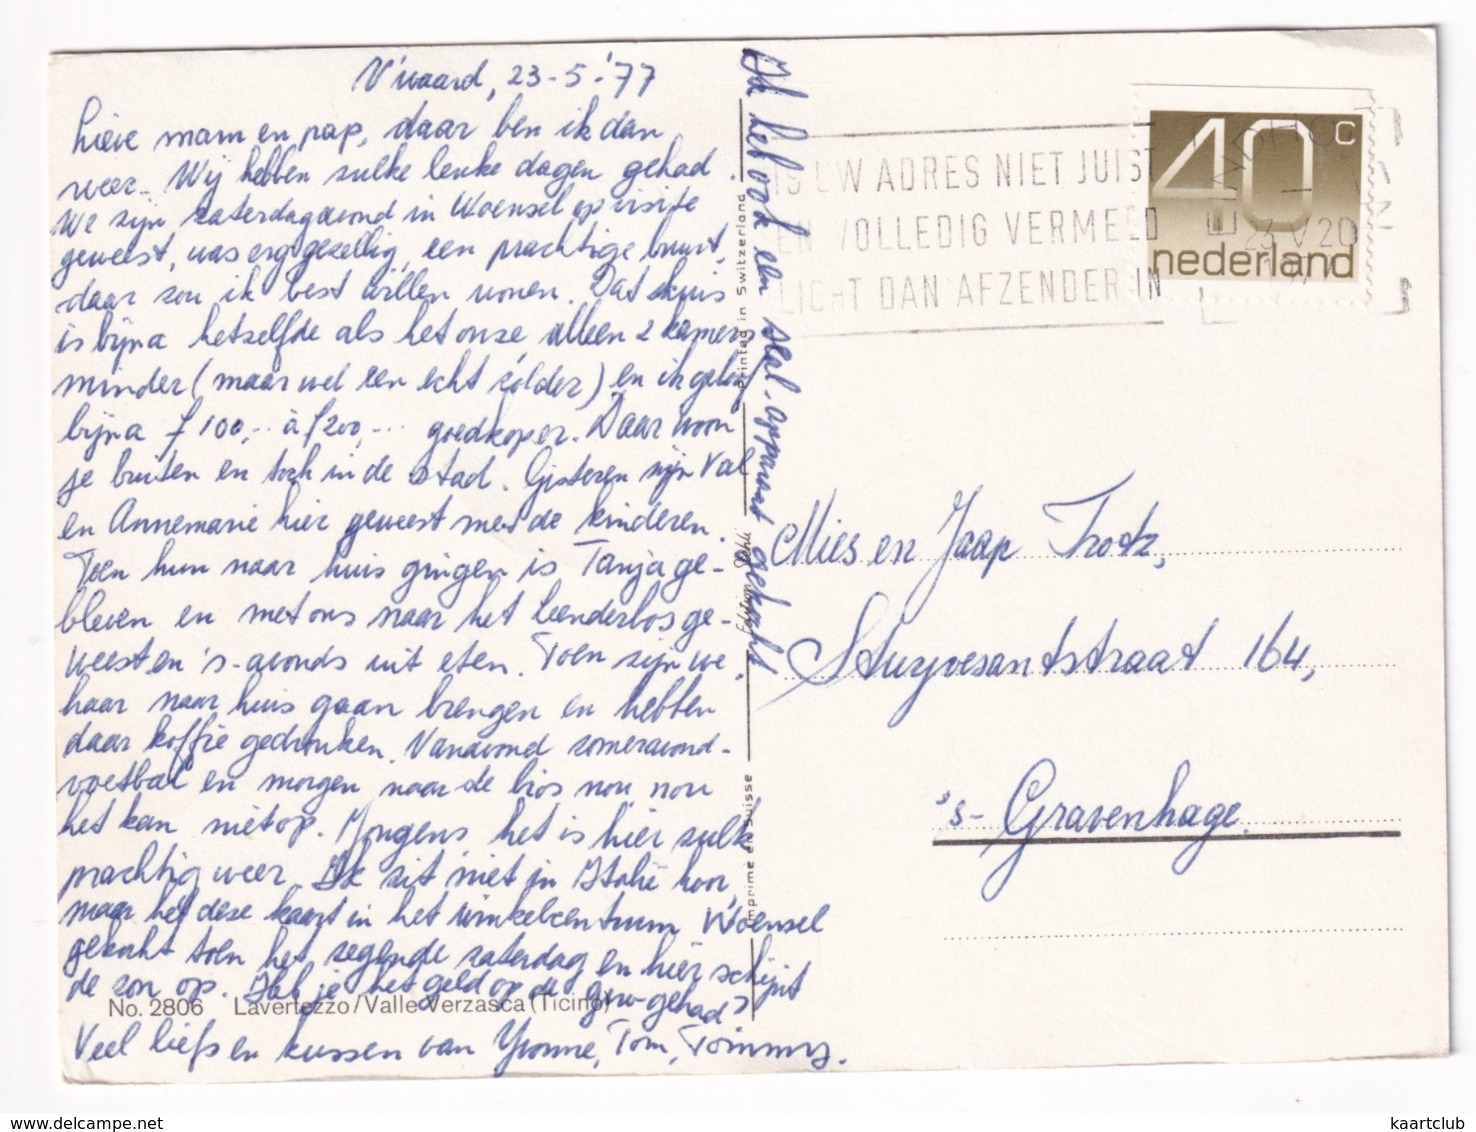 V'waard, 23-5-'77
Lieve mam en pap, daar ben ik dan
weer. Wij hebben zulke leuke dagen gehad.
We zijn zaterdagavond in Woensel op visite
geweest, was erg gezellig, een prachtige buurt,
daar zou ik best willen wonen. Dat huis
is bijna hetzelfde als het onze alleen 2 kamers
minder (maar wel een echt zolder) en ik geloof
bijna f 100,-- à f200,-- goedkoper. Daar woon
je buiten en toch in de stad. Gisteren zijn Val
en Annemarie hier geweest met de kinderen.
Toen hun naar huis gingen is Tanja ge-
bleven en met ons naar het Leenderbos ge-
weest en 's-avonds uit eten. Toen zijn we
haar naar huis gaan brengen en hebben
daar koffie gedronken. Vanavond zomeravond-
voetbal en morgen naar de bios nou nou
het kan niet op. Jongens het is hier zulk
prachtig weer. Ik zit niet in Italië hoor,
maar heb deze kaart in het winkelcentrum Woensel
gekocht toen het regende zaterdag en hier schijnt
de zon op. Heb je het geld op de giro gehad?
Veel liefs en kussen van Yvonne, Tom, Tommy.
Ik heb ook een seal-apparaat gekocht
No. 2806 Lavertezzo/Valle Verzasca (Ticino)
Imprimé en Suisse
Edition
Printed in Switzerland
IS UW ADRES NIET JUIST
EN VOLLEDIG VERMELD
LICHT DAN AFZENDER IN
EINDHOVEN
23 V 20
1977
40c
nederland
Mies en Jaap Trotz,
Stuyvesantstraat 164,
's-Gravenhage.
kaartclub